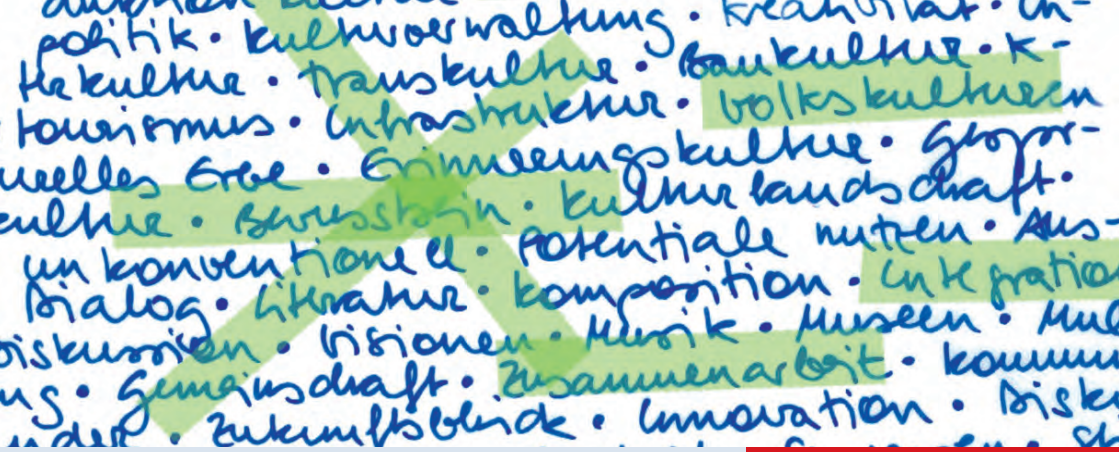 politik · kulturverwaltung · kreativität · In-
kultur · Transkultur · Baukultur · K-
tourismus · Infrastruktur · Volkskulturen
Erbe · Erinnerungskultur ·
kultur · Bewusstsein · Kulturlandschaft ·
unkonventionell · Potentiale nutzen · Aus-
Dialog · Literatur · komposition · Integratio
Diskussion · Visionen · Musik · Museen · Mul
ng · Gemeinschaft · Zusammenarbeit · kommu
Zukunftsblicke · Innovation · Disk